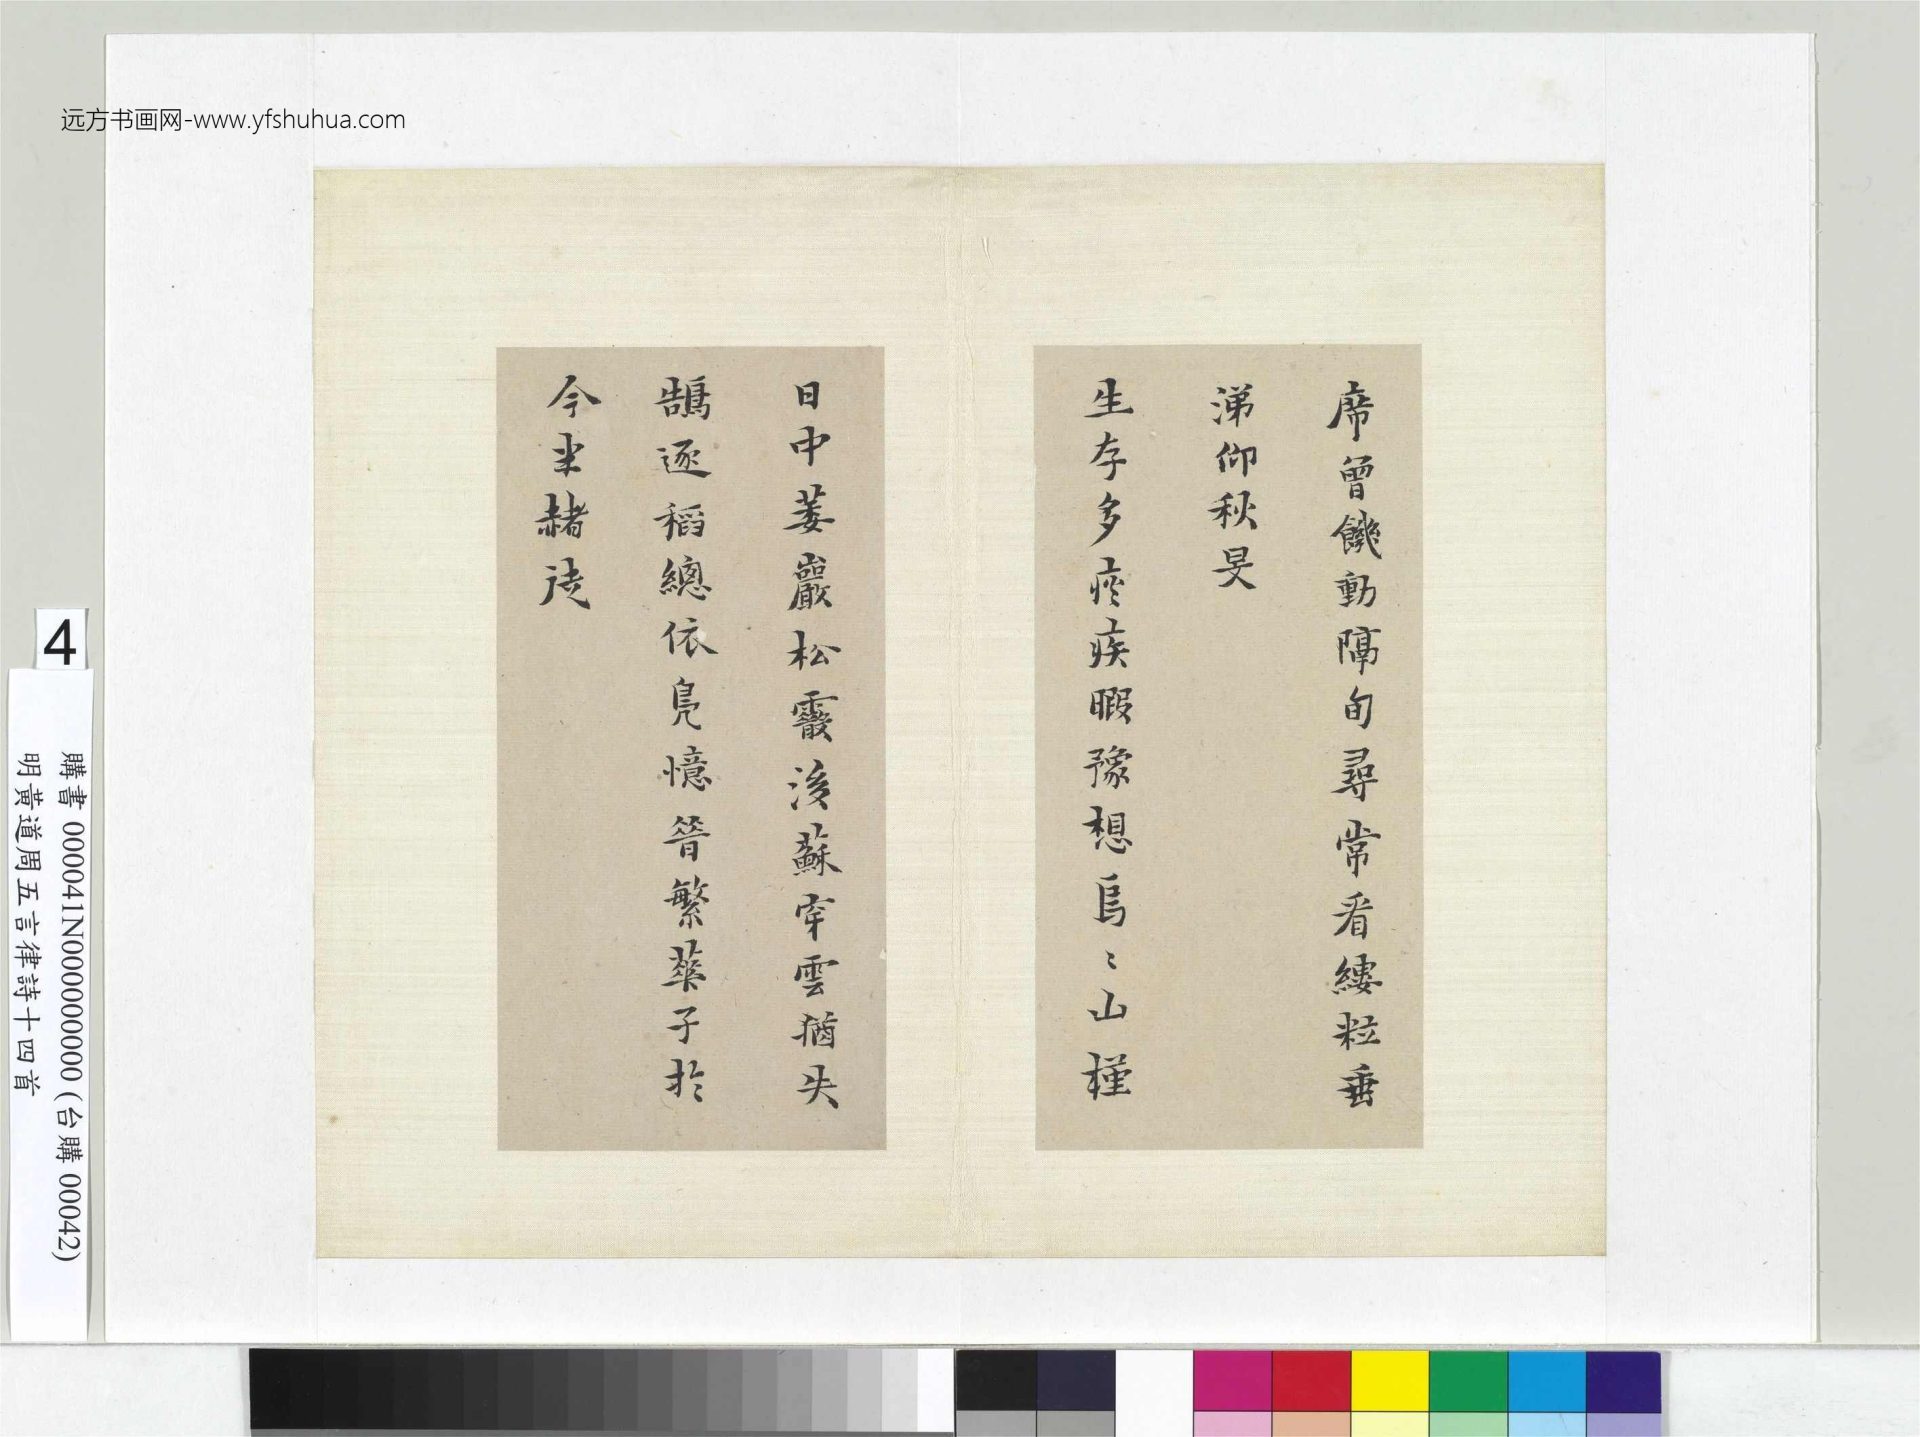 远方书画网-www.yfshuhua.com
席曾饑動隔旬尋常看縷粒垂
涕仰秋旻
生存多疾暇豫想烏〻山槿
日中萎巖松霰後蘇穿雲猶失
鵠逐稻總依鳧憶昔繁華子於
今半赭徒
4
購書 000041N000000000 (台購 00042)
明黃道周五言律詩十四首